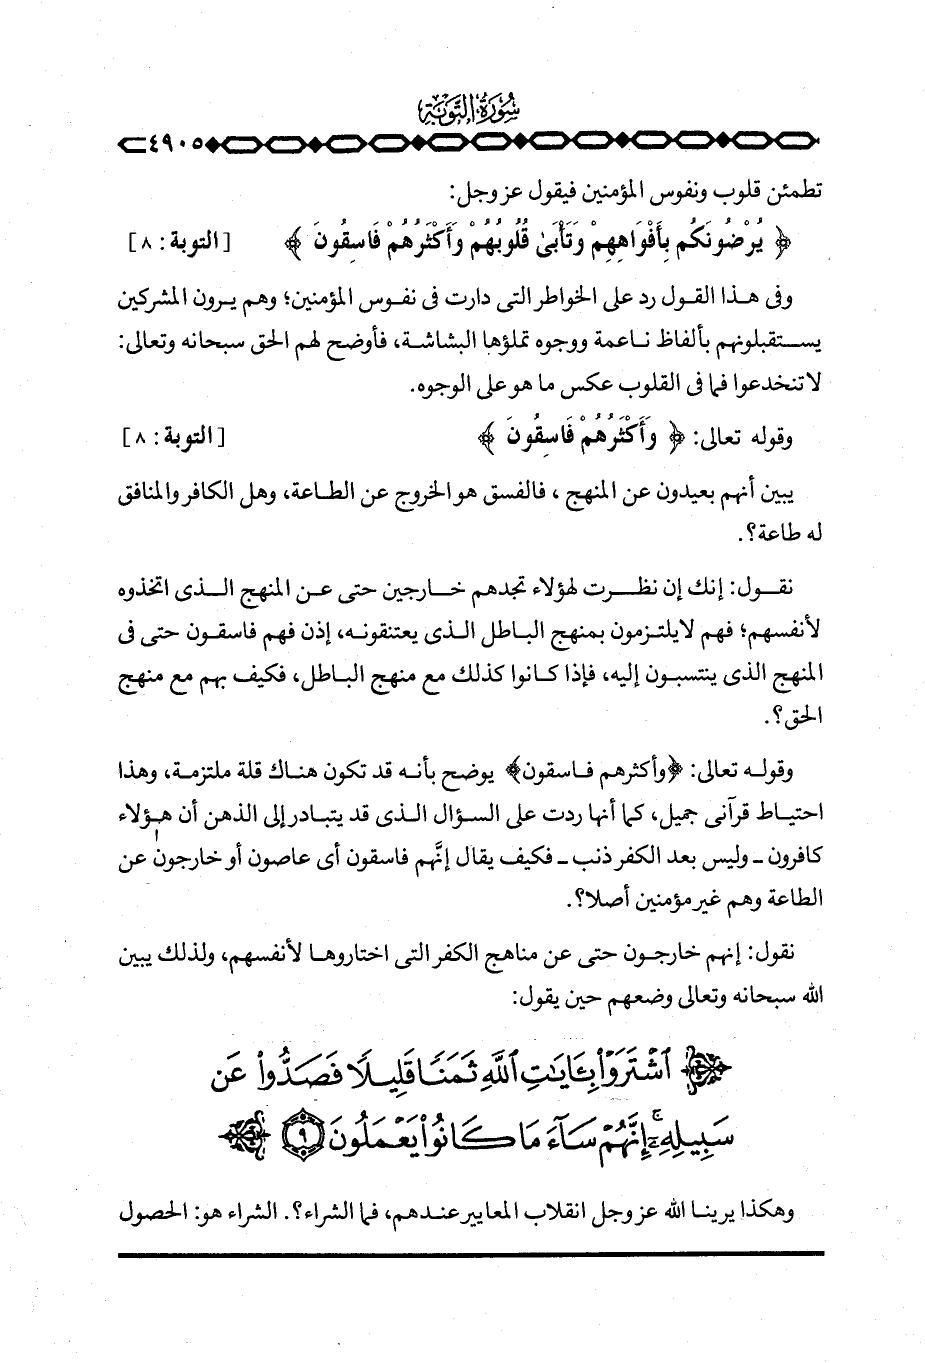 سُورَةُ التَّوْبَةِ
٤٩٠٥
تطمئن قلوب ونفوس المؤمنين فيقول عز وجل:
﴿ يُرْضُونَكُم بِأَفْوَاهِهِمْ وَتَأْبَىٰ قُلُوبُهُمْ وَأَكْثَرُهُمْ فَاسِقُونَ ﴾ [التوبة: ٨]
وفى هذا القول رد على الخواطر التى دارت فى نفوس المؤمنين؛ وهم يرون المشركين
يستقبلونهم بألفاظ ناعمة ووجوه تملؤها البشاشة، فأوضح لهم الحق سبحانه وتعالى:
لا تنخدعوا فما فى القلوب عكس ما هو على الوجوه.
وقوله تعالى: ﴿ وَأَكْثَرُهُمْ فَاسِقُونَ ﴾ [التوبة: ٨]
يبين أنهم بعيدون عن المنهج ، فالفسق هو الخروج عن الطاعة، وهل الكافر والمنافق
له طاعة؟.
نقول: إنك إن نظرت لهؤلاء تجدهم خارجين حتى عن المنهج الذى اتخذوه
لأنفسهم؛ فهم لايلتزمون بمنهج الباطل الذى يعتنقونه، إذن فهم فاسقون حتى فى
المنهج الذى ينتسبون إليه، فإذا كانوا كذلك مع منهج الباطل، فكيف بهم مع منهج
الحق؟.
وقوله تعالى: ﴿وأكثرهم فاسقون﴾ يوضح بأنه قد تكون هناك قلة ملتزمة، وهذا
احتياط قرآنى جميل، كما أنها ردت على السؤال الذى قد يتبادر إلى الذهن أن هؤلاء
كافرون ـ وليس بعد الكفر ذنب ـ فكيف يقال إنَّهم فاسقون أى عاصون أو خارجون عن
الطاعة وهم غير مؤمنين أصلا؟.
نقول: إنهم خارجون حتى عن مناهج الكفر التى اختاروها لأنفسهم، ولذلك يبين
الله سبحانه وتعالى وضعهم حين يقول:
ٱشْتَرَوْا۟ بِـَٔايَـٰتِ ٱللَّهِ ثَمَنًا قَلِيلًا فَصَدُّوا۟ عَن
سَبِيلِهِۦٓ ۚ إِنَّهُمْ سَآءَ مَا كَانُوا۟ يَعْمَلُونَ ٩
وهكذا يرينا الله عز وجل انقلاب المعايير عندهم، فما الشراء؟. الشراء هو: الحصول